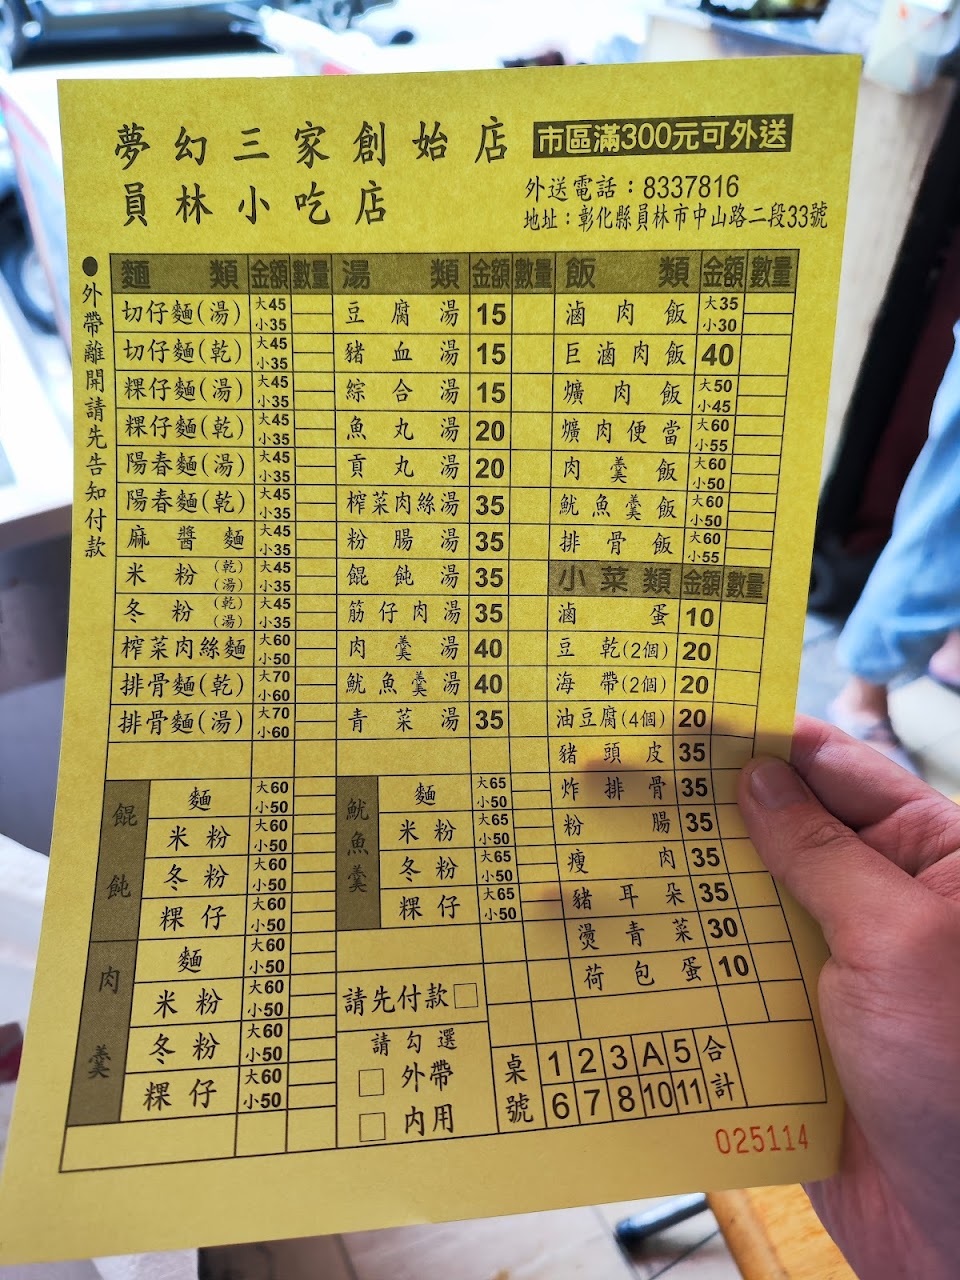 夢幻三家創始店
員林小吃店
市區滿300元可外送
外送電話：8337816
地址：彰化縣員林市中山路二段33號
●外帶離開請先告知付款
麵類 金額 數量
切仔麵(湯) 大45 小35
切仔麵(乾) 大45 小35
粿仔麵(湯) 大45 小35
粿仔麵(乾) 大45 小35
陽春麵(湯) 大45 小35
陽春麵(乾) 大45 小35
麻醬麵 大45 小35
米粉(乾)(湯) 大45 小35
冬粉(乾)(湯) 大45 小35
榨菜肉絲麵 大60 小50
排骨麵(乾) 大70 小60
排骨麵(湯) 大70 小60
餛飩
麵 大60 小50
米粉 大60 小50
冬粉 大60 小50
粿仔 大60 小50
肉羹
麵 大60 小50
米粉 大60 小50
冬粉 大60 小50
粿仔 大60 小50
湯類 金額 數量
豆腐湯 15
豬血湯 15
綜合湯 15
魚丸湯 20
貢丸湯 20
榨菜肉絲湯 35
粉腸湯 35
餛飩湯 35
筋仔肉湯 35
肉羹湯 40
魷魚羹湯 40
青菜湯 35
魷魚羹
麵 大65 小50
米粉 大65 小50
冬粉 大65 小50
粿仔 大65 小50
請先付款□
請勾選
□ 外帶
□ 內用
飯類 金額 數量
滷肉飯 大35 小30
巨滷肉飯 40
爌肉飯 大50 小45
爌肉便當 大60 小55
肉羹飯 大60 小50
魷魚羹飯 大60 小50
排骨飯 大60 小55
小菜類 金額 數量
滷蛋 10
豆乾(2個) 20
海帶(2個) 20
油豆腐(4個) 20
豬頭皮 35
炸排骨 35
粉腸 35
瘦肉 35
豬耳朵 35
燙青菜 30
荷包蛋 10
桌號 1 2 3 A 5
6 7 8 10 11
合計
025114